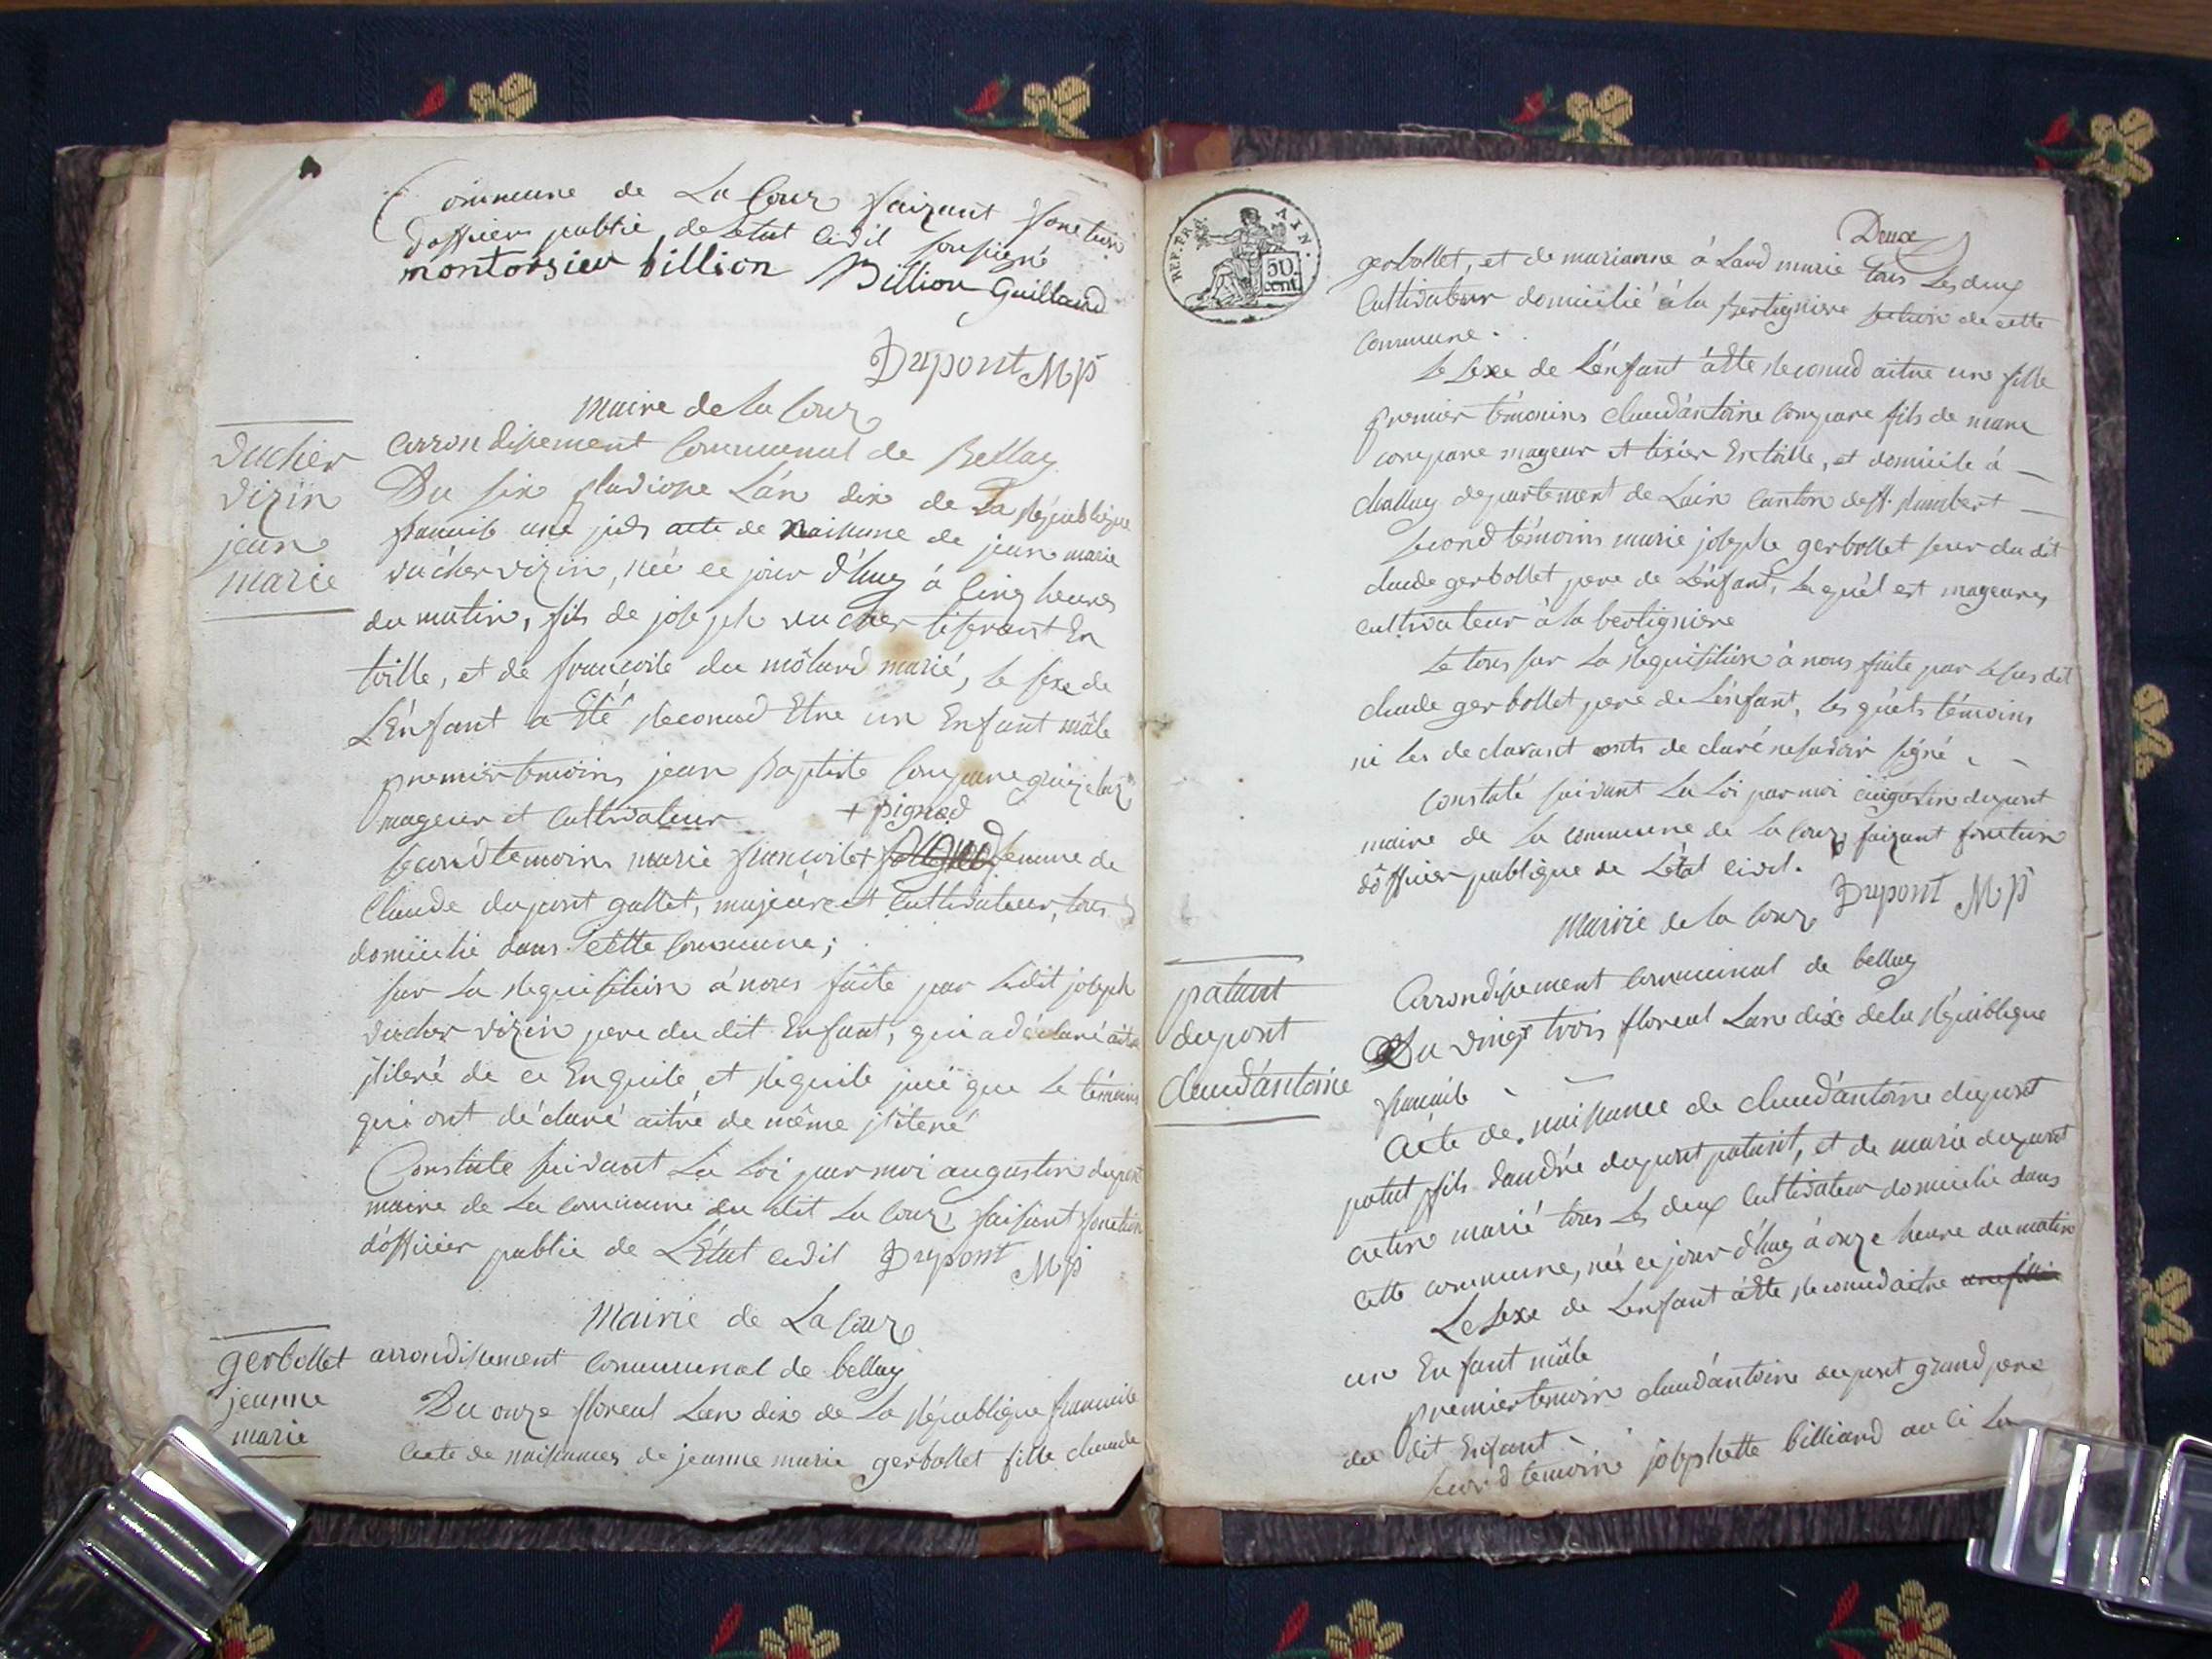 Commune de La Couz faizant fonction
dofficiers public de Letat Civil sousigné
montoisieu billion Billion Guilland
Dupont M p
Maire de la Couz
ducher
vizin
jean
marie
arrondisement Communal de Bellay
Du six pludiose L'an dix de La République
francaise acte de naissance de jean marie
ducher vizin, née ce jour d'huy à Cinq heures
du matin, fils de joseph ducher tiserant En
toille, et de francoise du môlard marié, le sexe de
L'Enfant a Eté Reconnud Etre un Enfant mâle
premier temoins jean Baptiste Compare
mageur et Cultivateur + pignod
second temoins marie francoise + femme de
Claude dupont gallet, majeure et Cultivateur, tous
domicilié dans cette Commune;
sur La Requisition à nous faite par Ledit joseph
ducher vizin pere du dit Enfant, qui a déclaré aitre
ilitéré de ce Enquite et Requite que Le témoins
qui ont déclaré aitre de même ilitéré
Constate suivant La Loi par moi augustin dupont
maire de La commune du dit La Couz, faisant fonction
d'officier public de L'Etat Civil Dupont M p
Mairie de La Couz
gerbollet
jeanne
marie
arrondisement Communal de bellay
Du onze floreal L'an dix de La République francaise
Acte de naisances de jeanne marie gerbollet fille claude
REP. FRA. AIN.
50 cent.
Deux
gerbollet, et de marianne marié tous Les deux
Cultivateur domicilié à la Bertigniere section de cette
Commune.
Le Sexe de L'enfant à Ete Reconnud aitre une fille
premier témonins claud'antoine Compare fils de marc
compare mageur et tisier En toille, et domicile à
challey departement de Lain Canton de St. Rambert
Second témoins marie josephe gerbollet seur du dit
claude gerbollet pere de L'énfant, Le quél est mageures
cultivateur à la bertigniere
Le tous sur La Requisition à nous faite par Le sus dit
claude gerbollet pere de L'énfant, Les quéls témoins
ni les declarant onts de claré ne savoir signé
Constaté suivant La Loi par moi augustin dupont
maire de La commune de La Couz faizant fonction
d'officier publique de L'état civil.
Dupont M p
Mairie de la Couz
patant
dupont
claud'antoine
Arrondisement Communal de bellay
Du vingt trois floreal L'an dix de la République
francaise
Acte de naisance de claud'antoine dupont
patant fils d'andré dupont patant, et de marie dupont
marié tous Les deux Cultivateur domicilié dans
cette commune, née ce jour d'huy à onze heure du matin
Le Sexe de L'enfant à Ete Reconnud aitre une fille
un Enfant mâle
premier temoin claud'antoine dupont grand pere
du dit Enfant
second temoins josephette billiard au ci La